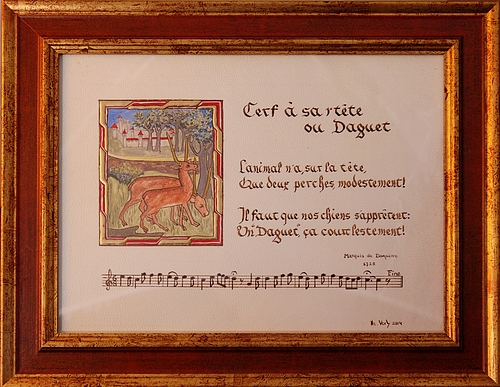 Cerf à sa tête
ou Daguet
L'animal n'a, sur la tête,
Que deux perches, modestement!
Il faut que nos chiens s'apprêtent:
Un "Daguet", ça court lestement!
Marquis de Dampierre
Fine